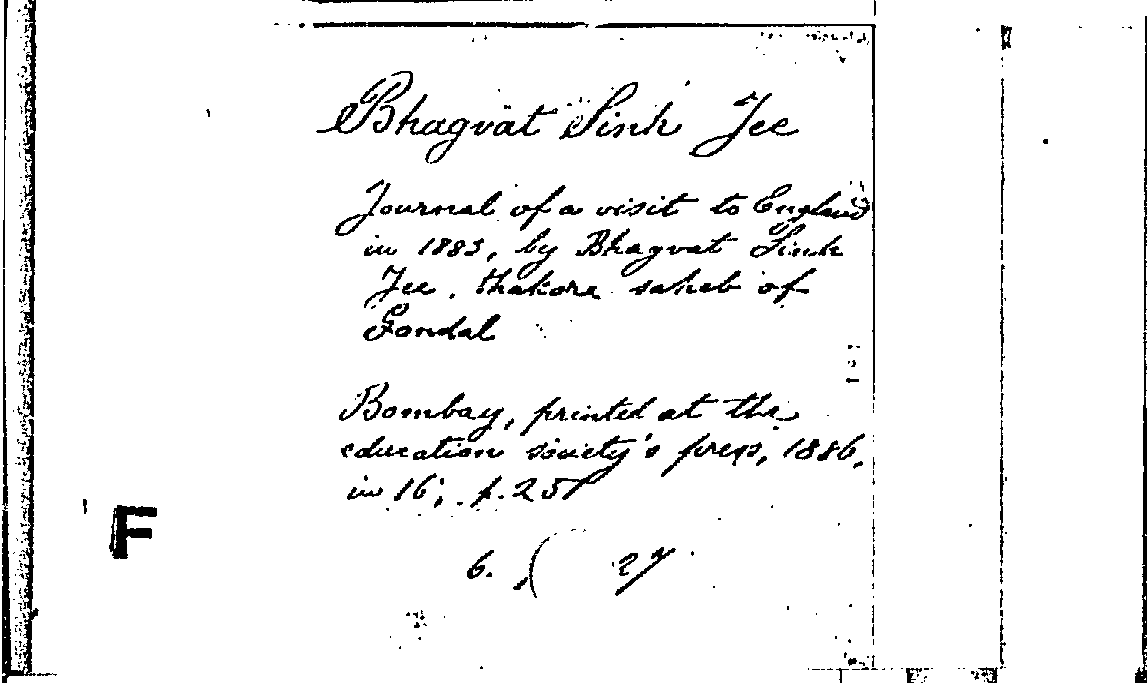 Bhagvat Sinh Jee
Journal of a visit to England
in 1883, by Bhagvat Sinh
Jee, thakore saheb of
Gondal
Bombay, printed at the
education society's press, 1886,
in 16°, p. 251
6. 27
F